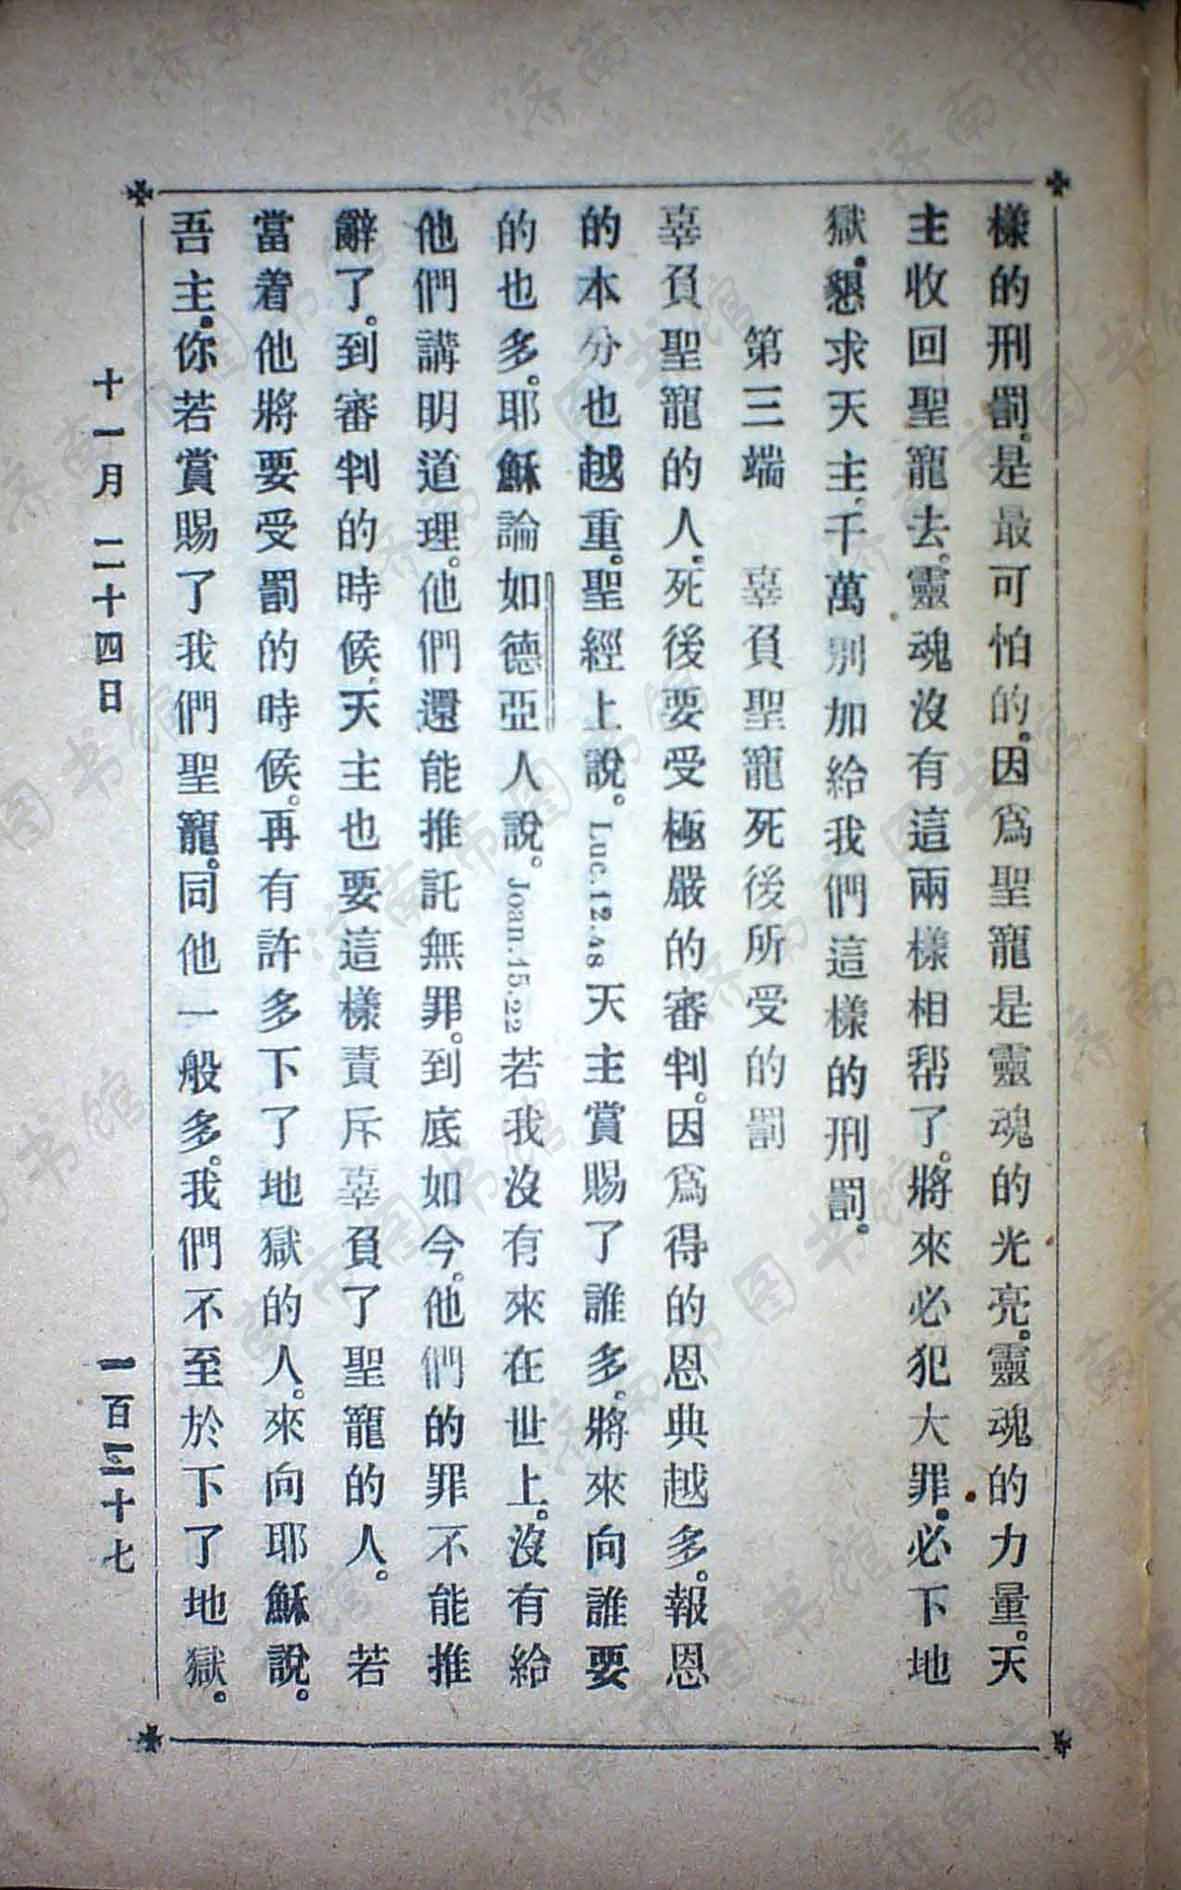 樣的刑罰。是最可怕的。因爲聖寵是靈魂的光亮。靈魂的力量。天
主收回聖寵去。靈魂沒有這兩樣相帮了。將來必犯大罪。必下地
獄。懇求天主、千萬別加給我們這樣的刑罰。
第三端　辜負聖寵死後所受的罰
辜負聖寵的人。死後要受極嚴的審判。因爲得的恩典越多。報恩
的本分也越重。聖經上說。Luc.12.48天主賞賜了誰多。將來向誰要
的也多。耶穌論如德亞人說。Joan.15.22若我沒有來在世上。沒有給
他們講明道理。他們還能推託無罪。到底如今。他們的罪不能推
辭了。到審判的時候、天主也要這樣責斥辜負了聖寵的人。若
當着他將要受罰的時候。再有許多下了地獄的人。來向耶穌說。
吾主。你若賞賜了我們聖寵。同他一般多。我們不至於下了地獄。
十一月二十四日
一百三十七
济南市图书馆